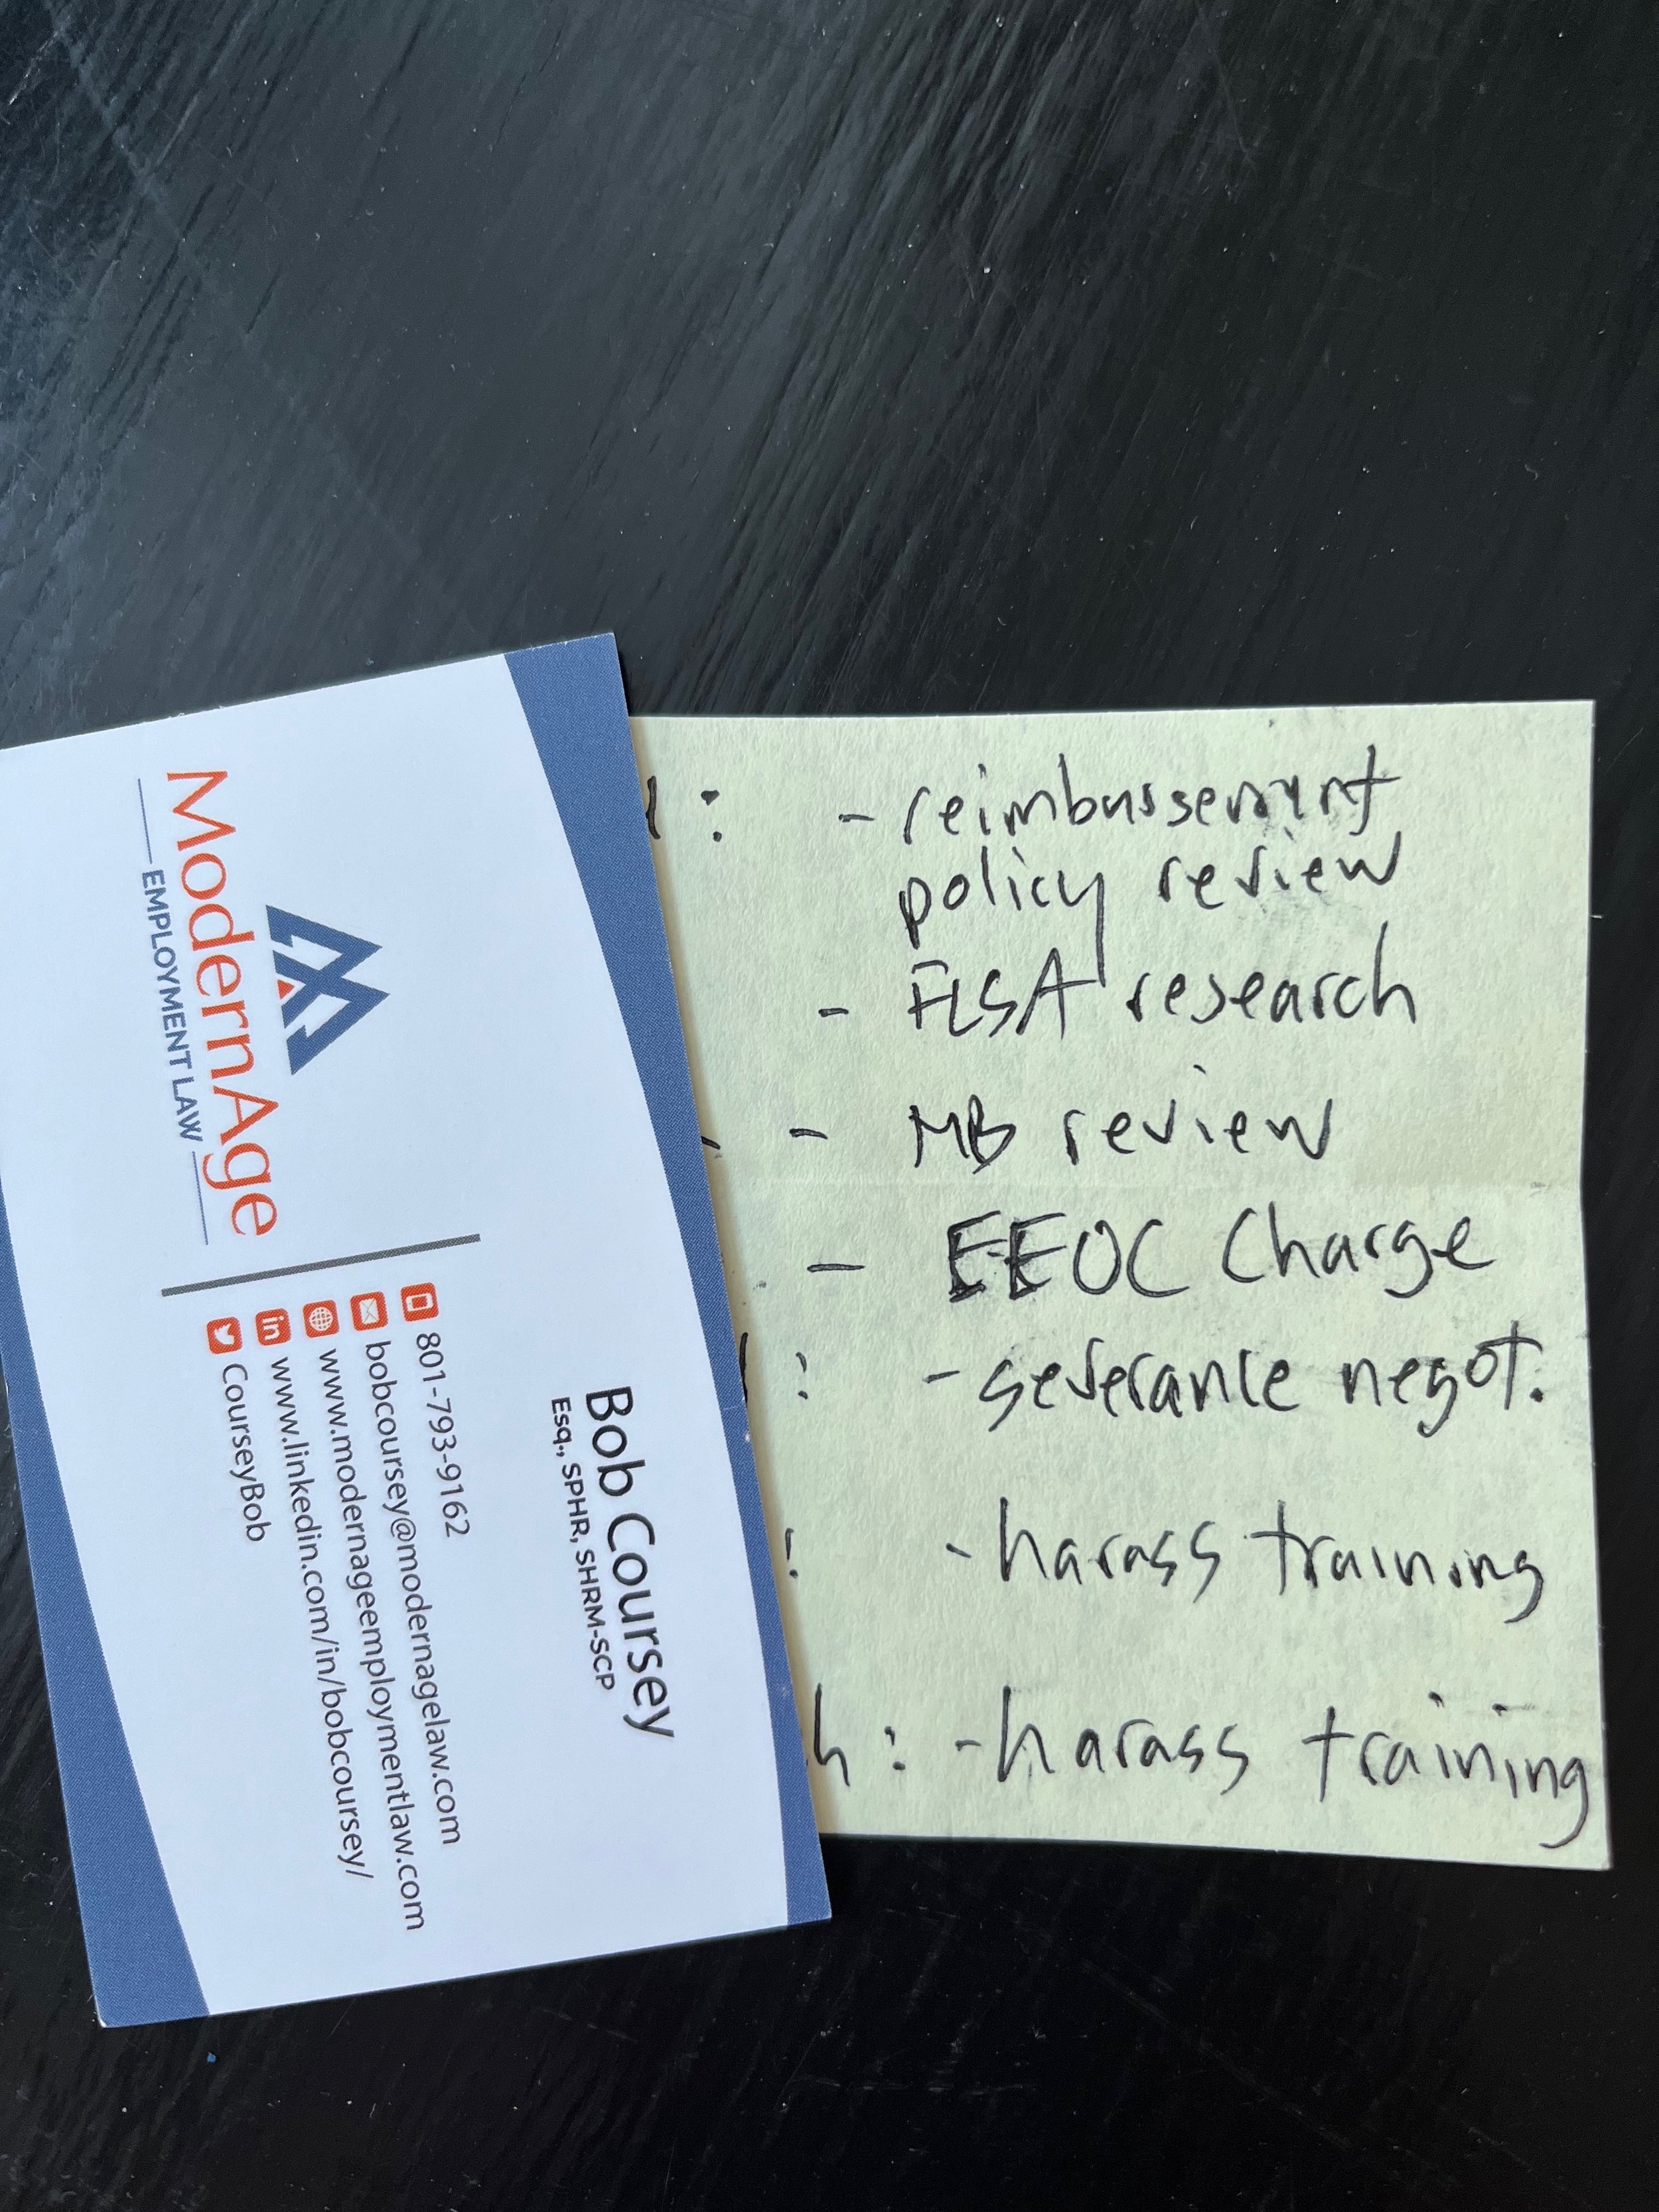 ModernAge
EMPLOYMENT LAW
Bob Coursey
Esq., SPHR, SHRM-SCP
801-793-9162
bobcoursey@modernagelaw.com
www.modernageemploymentlaw.com
www.linkedin.com/in/bobcoursey/
CourseyBob
: - reimbursement
policy review
- FLSA research
- MB review
- EEOC Charge
: - severance negot.
: - harass training
h: - harass training